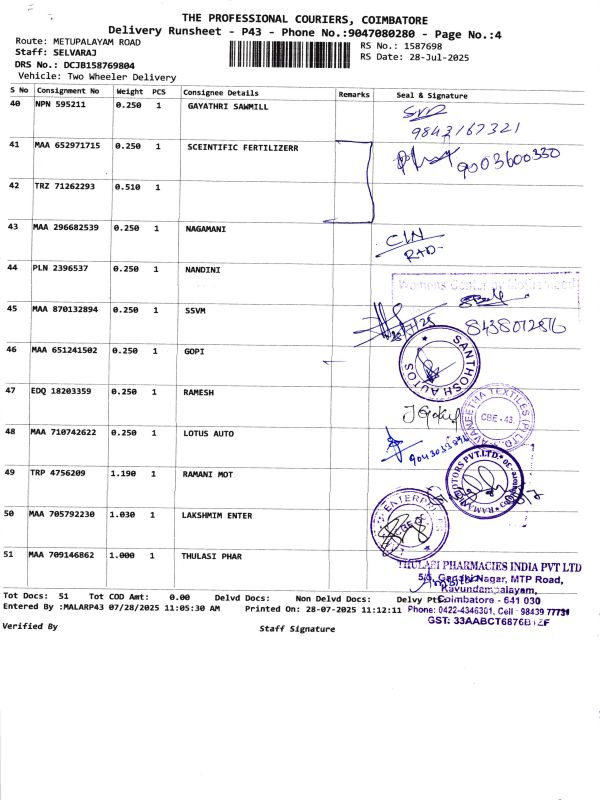 THE PROFESSIONAL COURIERS, COIMBATORE
Delivery Runsheet - P43 - Phone No.:9047080280 - Page No.:4
Route: METUPALAYAM ROAD
RS No.: 1587698
Staff: SELVARAJ
RS Date: 28-Jul-2025
DRS No.: DCJB158769804
Vehicle: Two Wheeler Delivery
S No Consignment No Weight PCS Consignee Details Remarks Seal & Signature
40 NPN 595211 0.250 1 GAYATHRI SAWMILL
9843167321
41 MAA 652971715 0.250 1 SCEINTIFIC FERTILIZERR
9003600330
42 TRZ 71262293 0.510 1
43 MAA 296682539 0.250 1 NAGAMANI
44 PLN 2396537 0.250 1 NANDINI
Womens Center by Motherhood
45 MAA 870132894 0.250 1 SSVM
8438072816
46 MAA 651241502 0.250 1 GOPI
SANTHOSH AUTOS
47 EDQ 18203359 0.250 1 RAMESH
CBE - 43.
48 MAA 710742622 0.250 1 LOTUS AUTO
49 TRP 4756209 1.190 1 RAMANI MOT
50 MAA 705792230 1.030 1 LAKSHMIM ENTER
51 MAA 709146862 1.000 1 THULASI PHAR
THULASI PHARMACIES INDIA PVT LTD
Gandhi Nagar, MTP Road,
Kavundampalayam,
Coimbatore - 641 030
Phone: 0422-4346301, Cell : 98439 77731
GST: 33AABCT6876B1ZF
Tot Docs: 51 Tot COD Amt: 0.00 Delvd Docs: Non Delvd Docs: Delvy Pts:
Entered By :MALARP43 07/28/2025 11:05:30 AM Printed On: 28-07-2025 11:12:11
Verified By Staff Signature